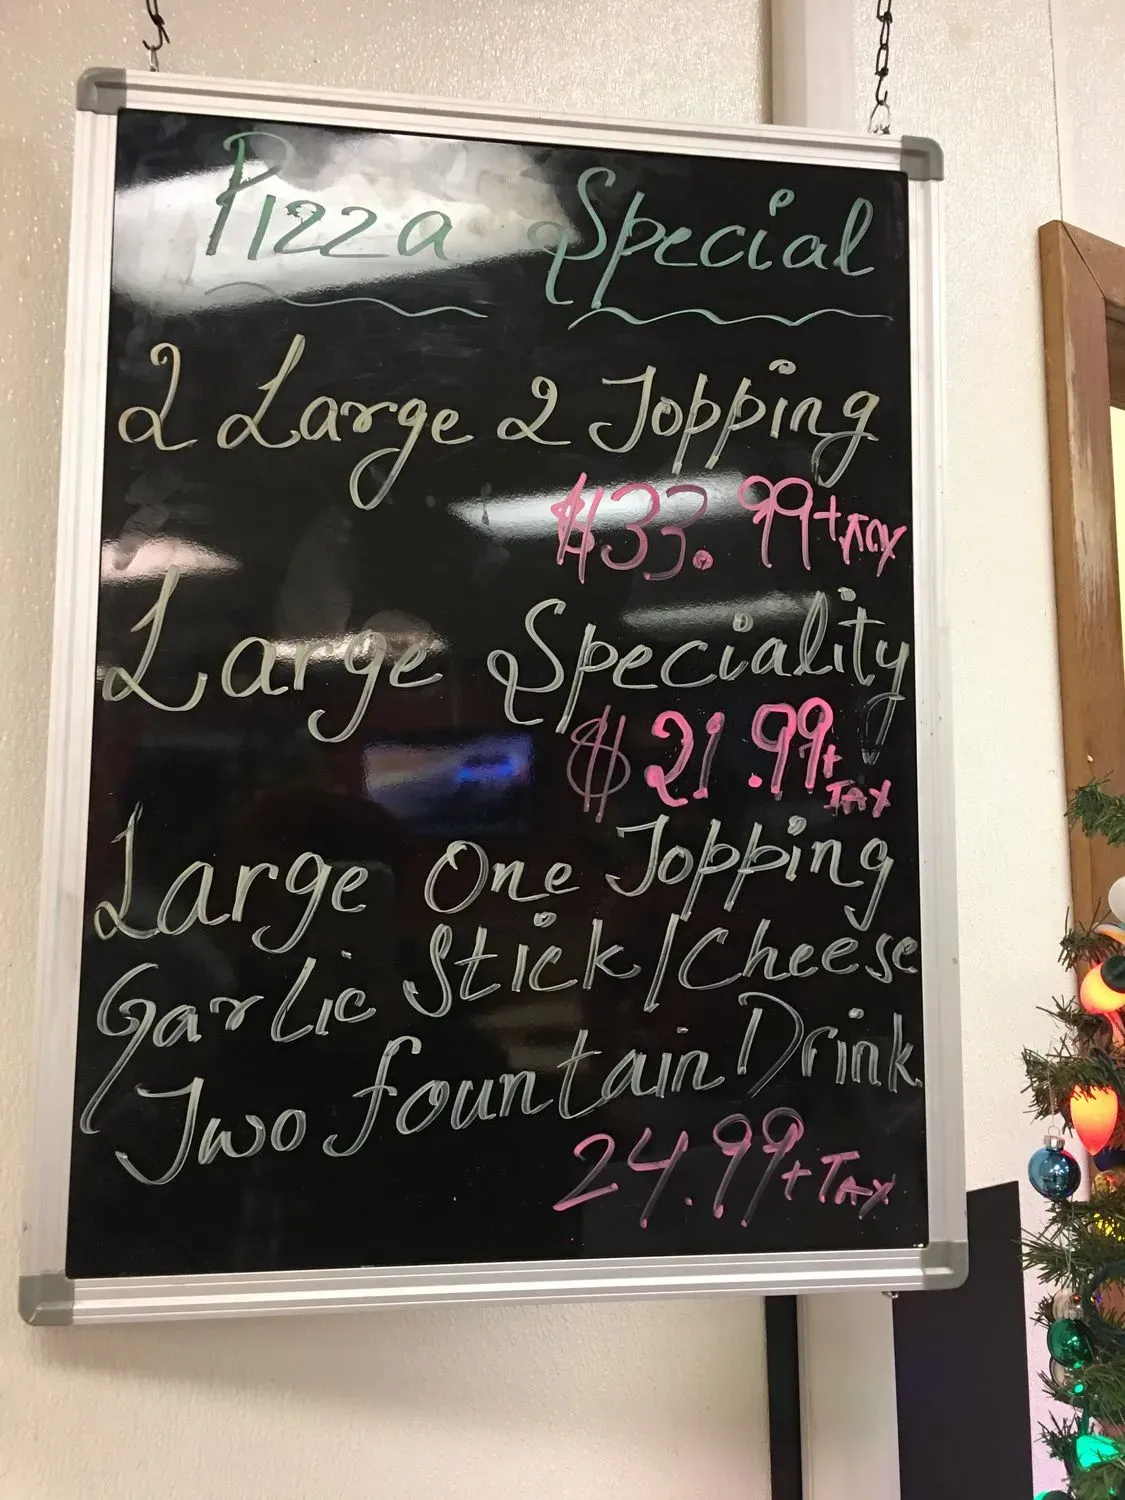 Pizza Special
2 Large 2 Topping
$33.99+tax
Large Speciality
$21.99+
TAX
Large One Topping
Garlic Stick/Cheese
Two fountain Drink
24.99+TAX